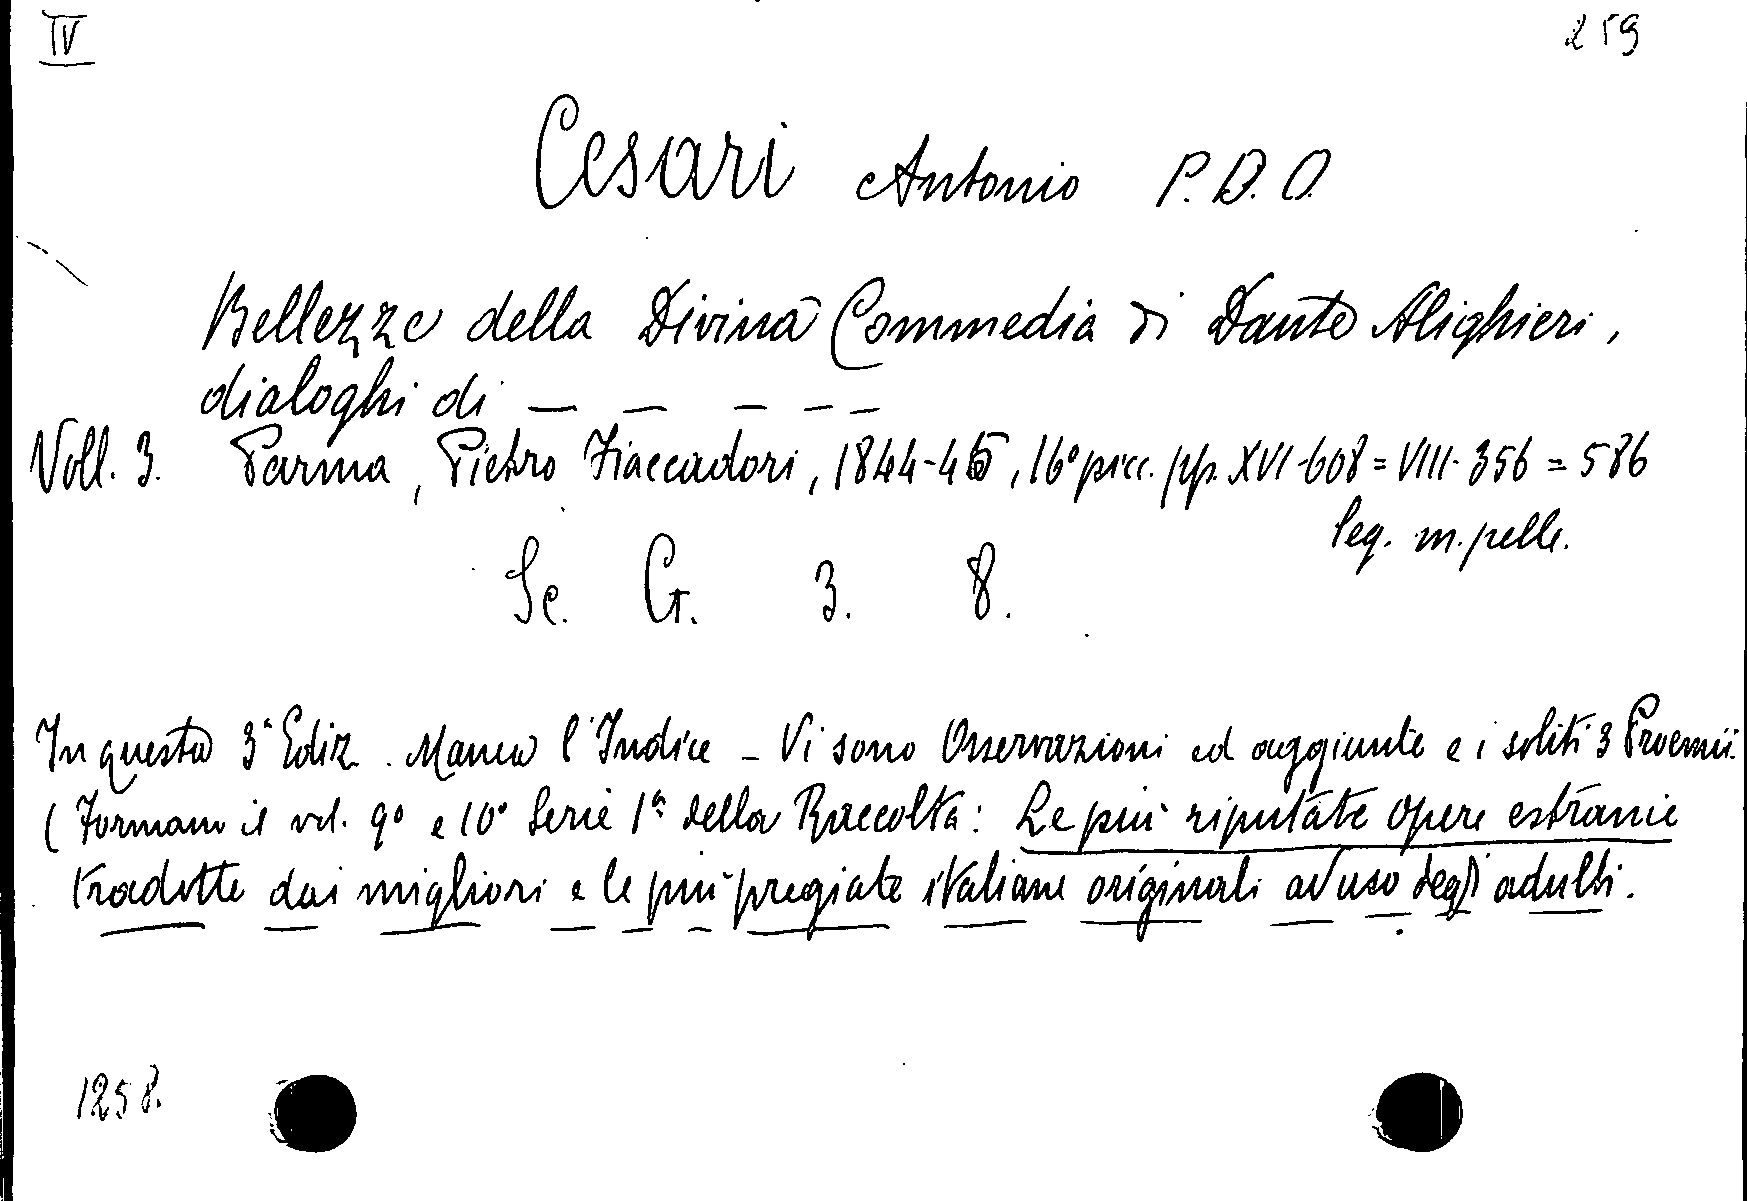 IV 259
Cesari Antonio P.D.O.
Bellezze della Divina Commedia di Dante Alighieri,
dialoghi di — — — — —
Voll. 3. Parma, Pietro Fiaccadori, 1844-45, 16° picc. pp. XVI-608 = VIII-356 = 586
leg. m. pelle.
Sc. Cr. 3. 8.
In questa 3ª Ediz. Manca l'Indice - Vi sono Osservazioni ed aggiunte e i soliti 3 Proemii.
(Formano il vol. 9° e 10° Serie 1ª della Raccolta: Le più riputate opere estranie
tradotte dai migliori e le più pregiate italiane originali ad uso degli adulti.
1258.